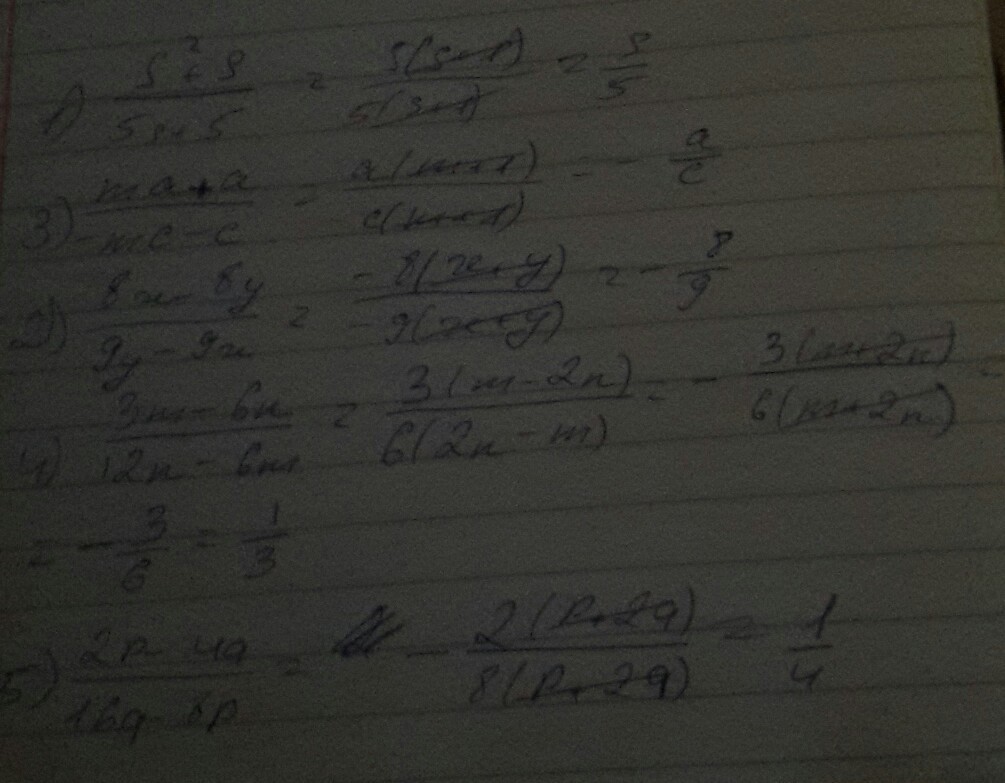 1) s²+s / 5s+5 = s(s+1) / 5(s+1) = s/5
3) ma+a / -mc-c = a(m+1) / c(m+1) = - a/c
2) 8x-8y / 9y-9x = -8(x+y) / -9(x+y) = - 8/9
4) 3m-6n / 12n-6m = 3(m-2n) / 6(2n-m) = - 3(m+2n) / 6(m+2n) =
= - 3/6 = 1/3
5) 2p-4q / 16q-8p = - 2(p+2q) / 8(p+2q) = 1/4